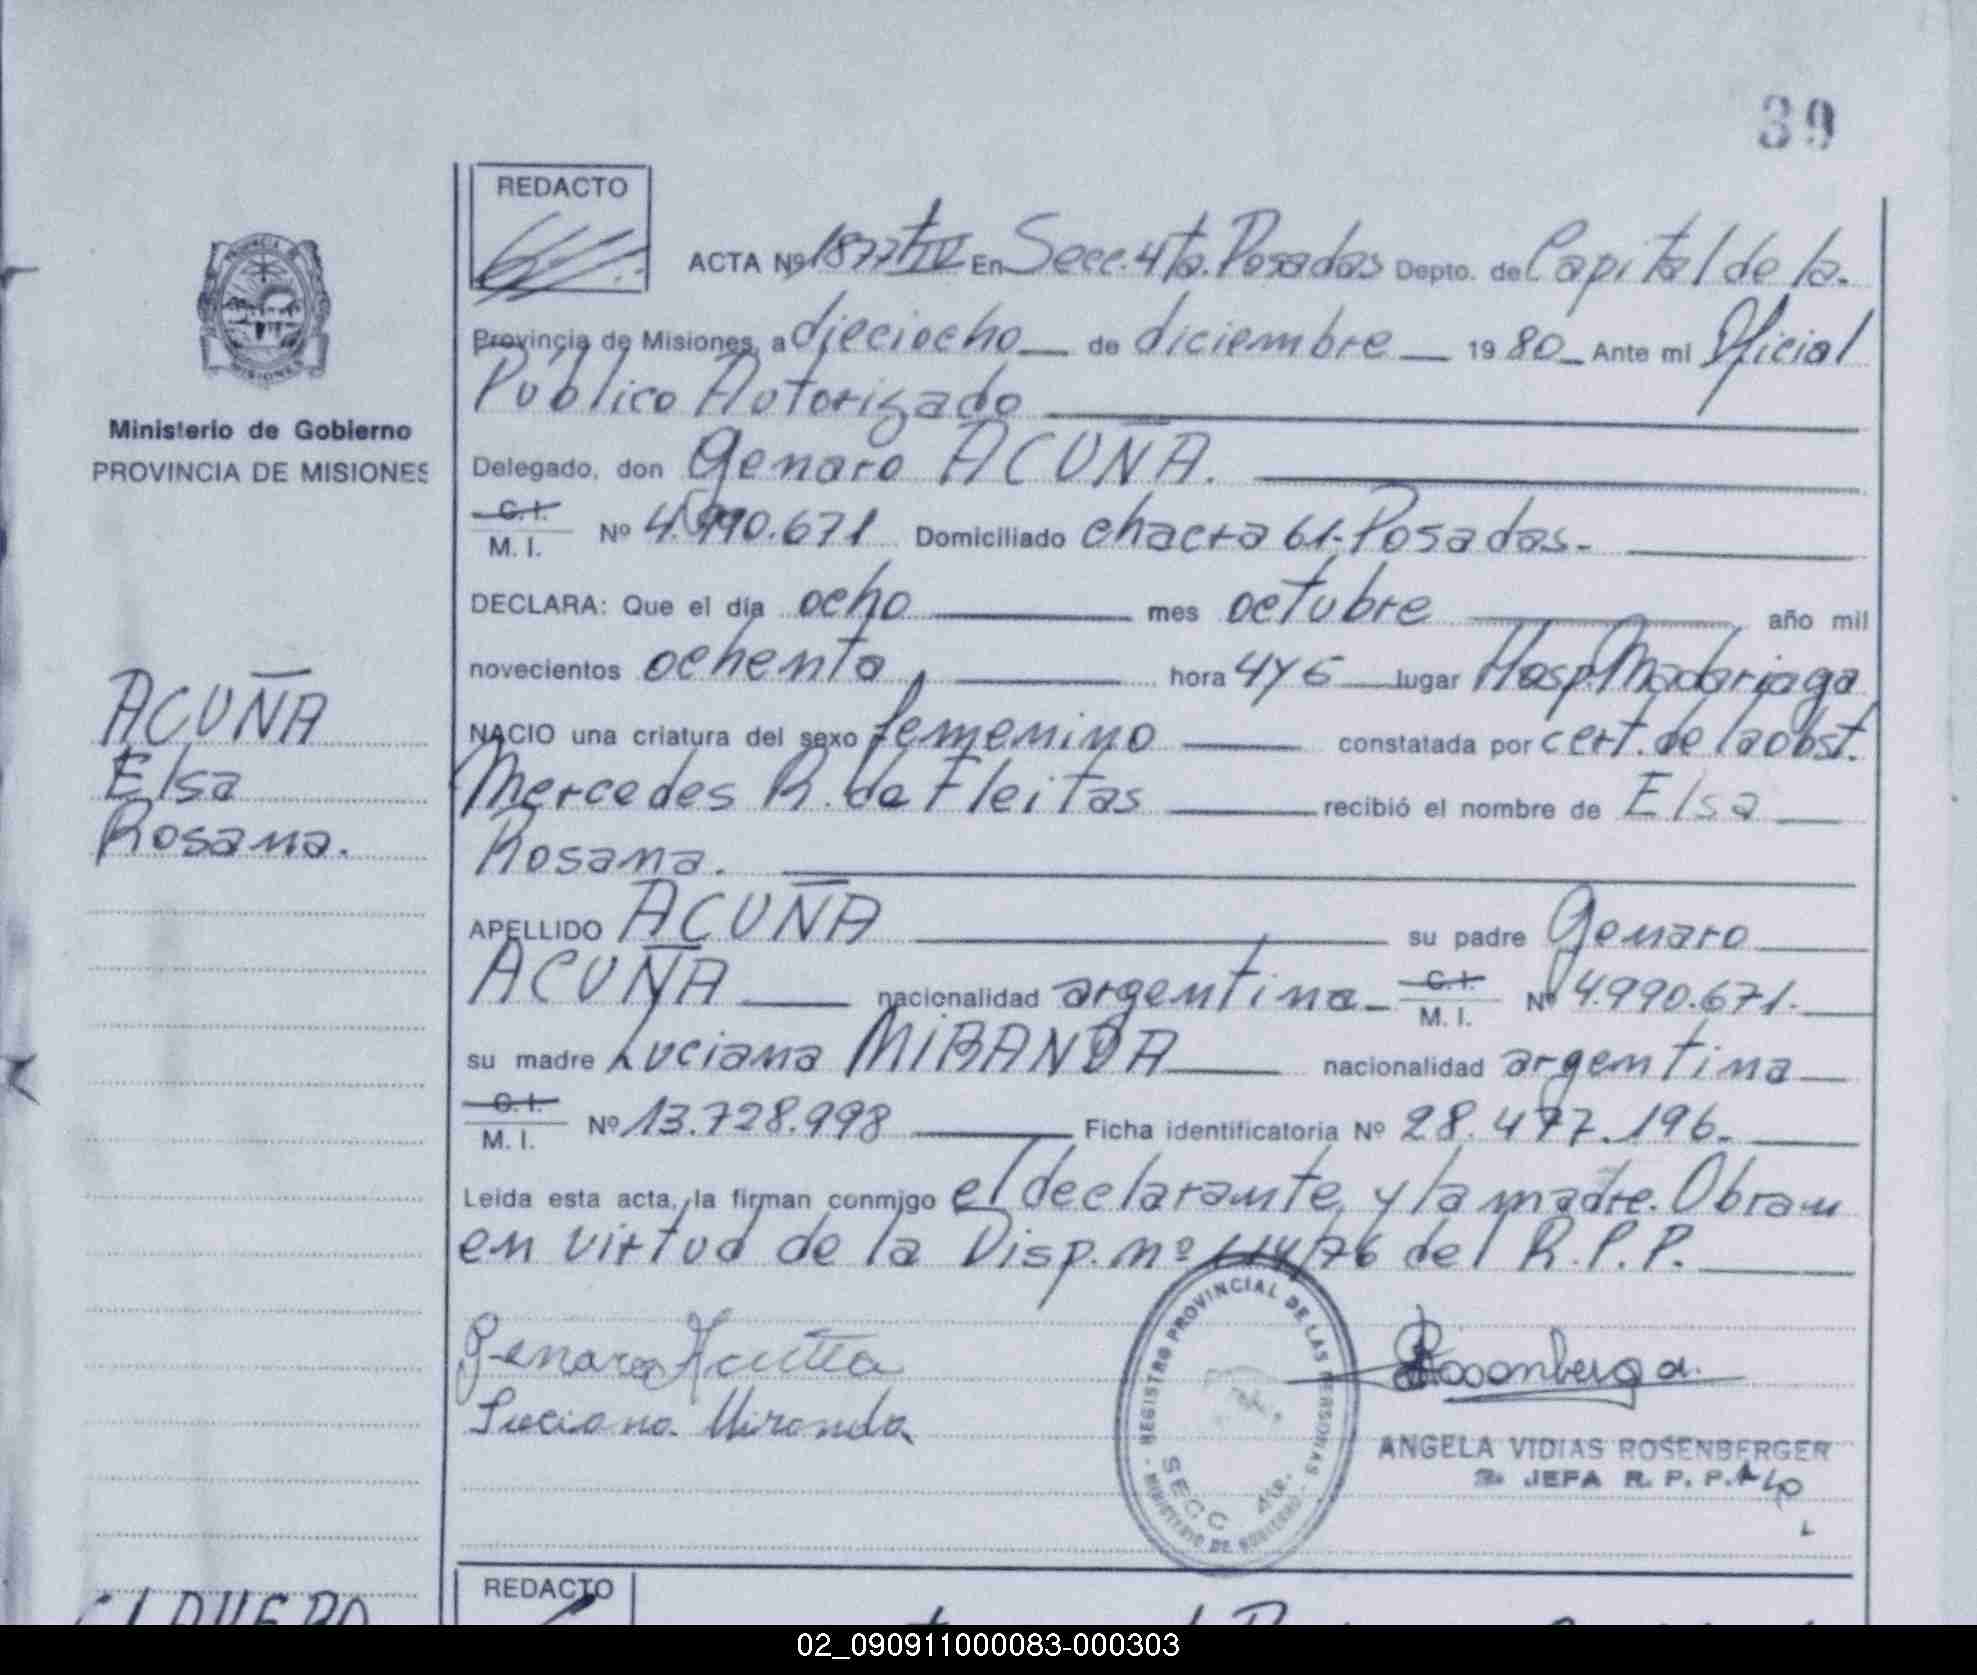 39
REDACTO
ACTA Nº 1877 tIV En Secc. 4ta. Posadas Depto. de Capital de la.
Provincia de Misiones, a dieciocho de diciembre 19 80 Ante mi Oficial
Público Autorizado
Delegado, don Genaro ACUÑA.
C. I.
M. I. Nº 4.990.671 Domiciliado chacra 61-Posadas-
DECLARA: Que el día ocho mes octubre año mil
novecientos ochenta, hora 4y5 lugar Hosp. Madariaga
NACIO una criatura del sexo femenino constatada por cert. de la obst.
Mercedes R. de Fleitas recibió el nombre de Elsa
Rosana.
APELLIDO ACUÑA su padre Genaro
ACUÑA nacionalidad argentina C. I.
M. I. Nº 4.990.671.
su madre Luciana MIRANDA nacionalidad argentina
C. I.
M. I. Nº 13.728.998 Ficha identificatoria Nº 28.477.196.
Leida esta acta, la firman conmigo el declarante, y la madre. Obran
en virtud de la Disp. nº 114/76 del R.P.P.
Genaro Acuña
Luciana Miranda
Rosenberger
ANGELA VIDIAS ROSENBERGER
JEFA R. P. P.
REGISTRO PROVINCIAL DE LAS PERSONAS
SECC 4ta.
MINISTERIO DE GOBIERNO
PROVINCIA
MISIONES
Ministerio de Gobierno
PROVINCIA DE MISIONES
ACUÑA
Elsa
Rosana.
REDACTO
02_090911000083-000303